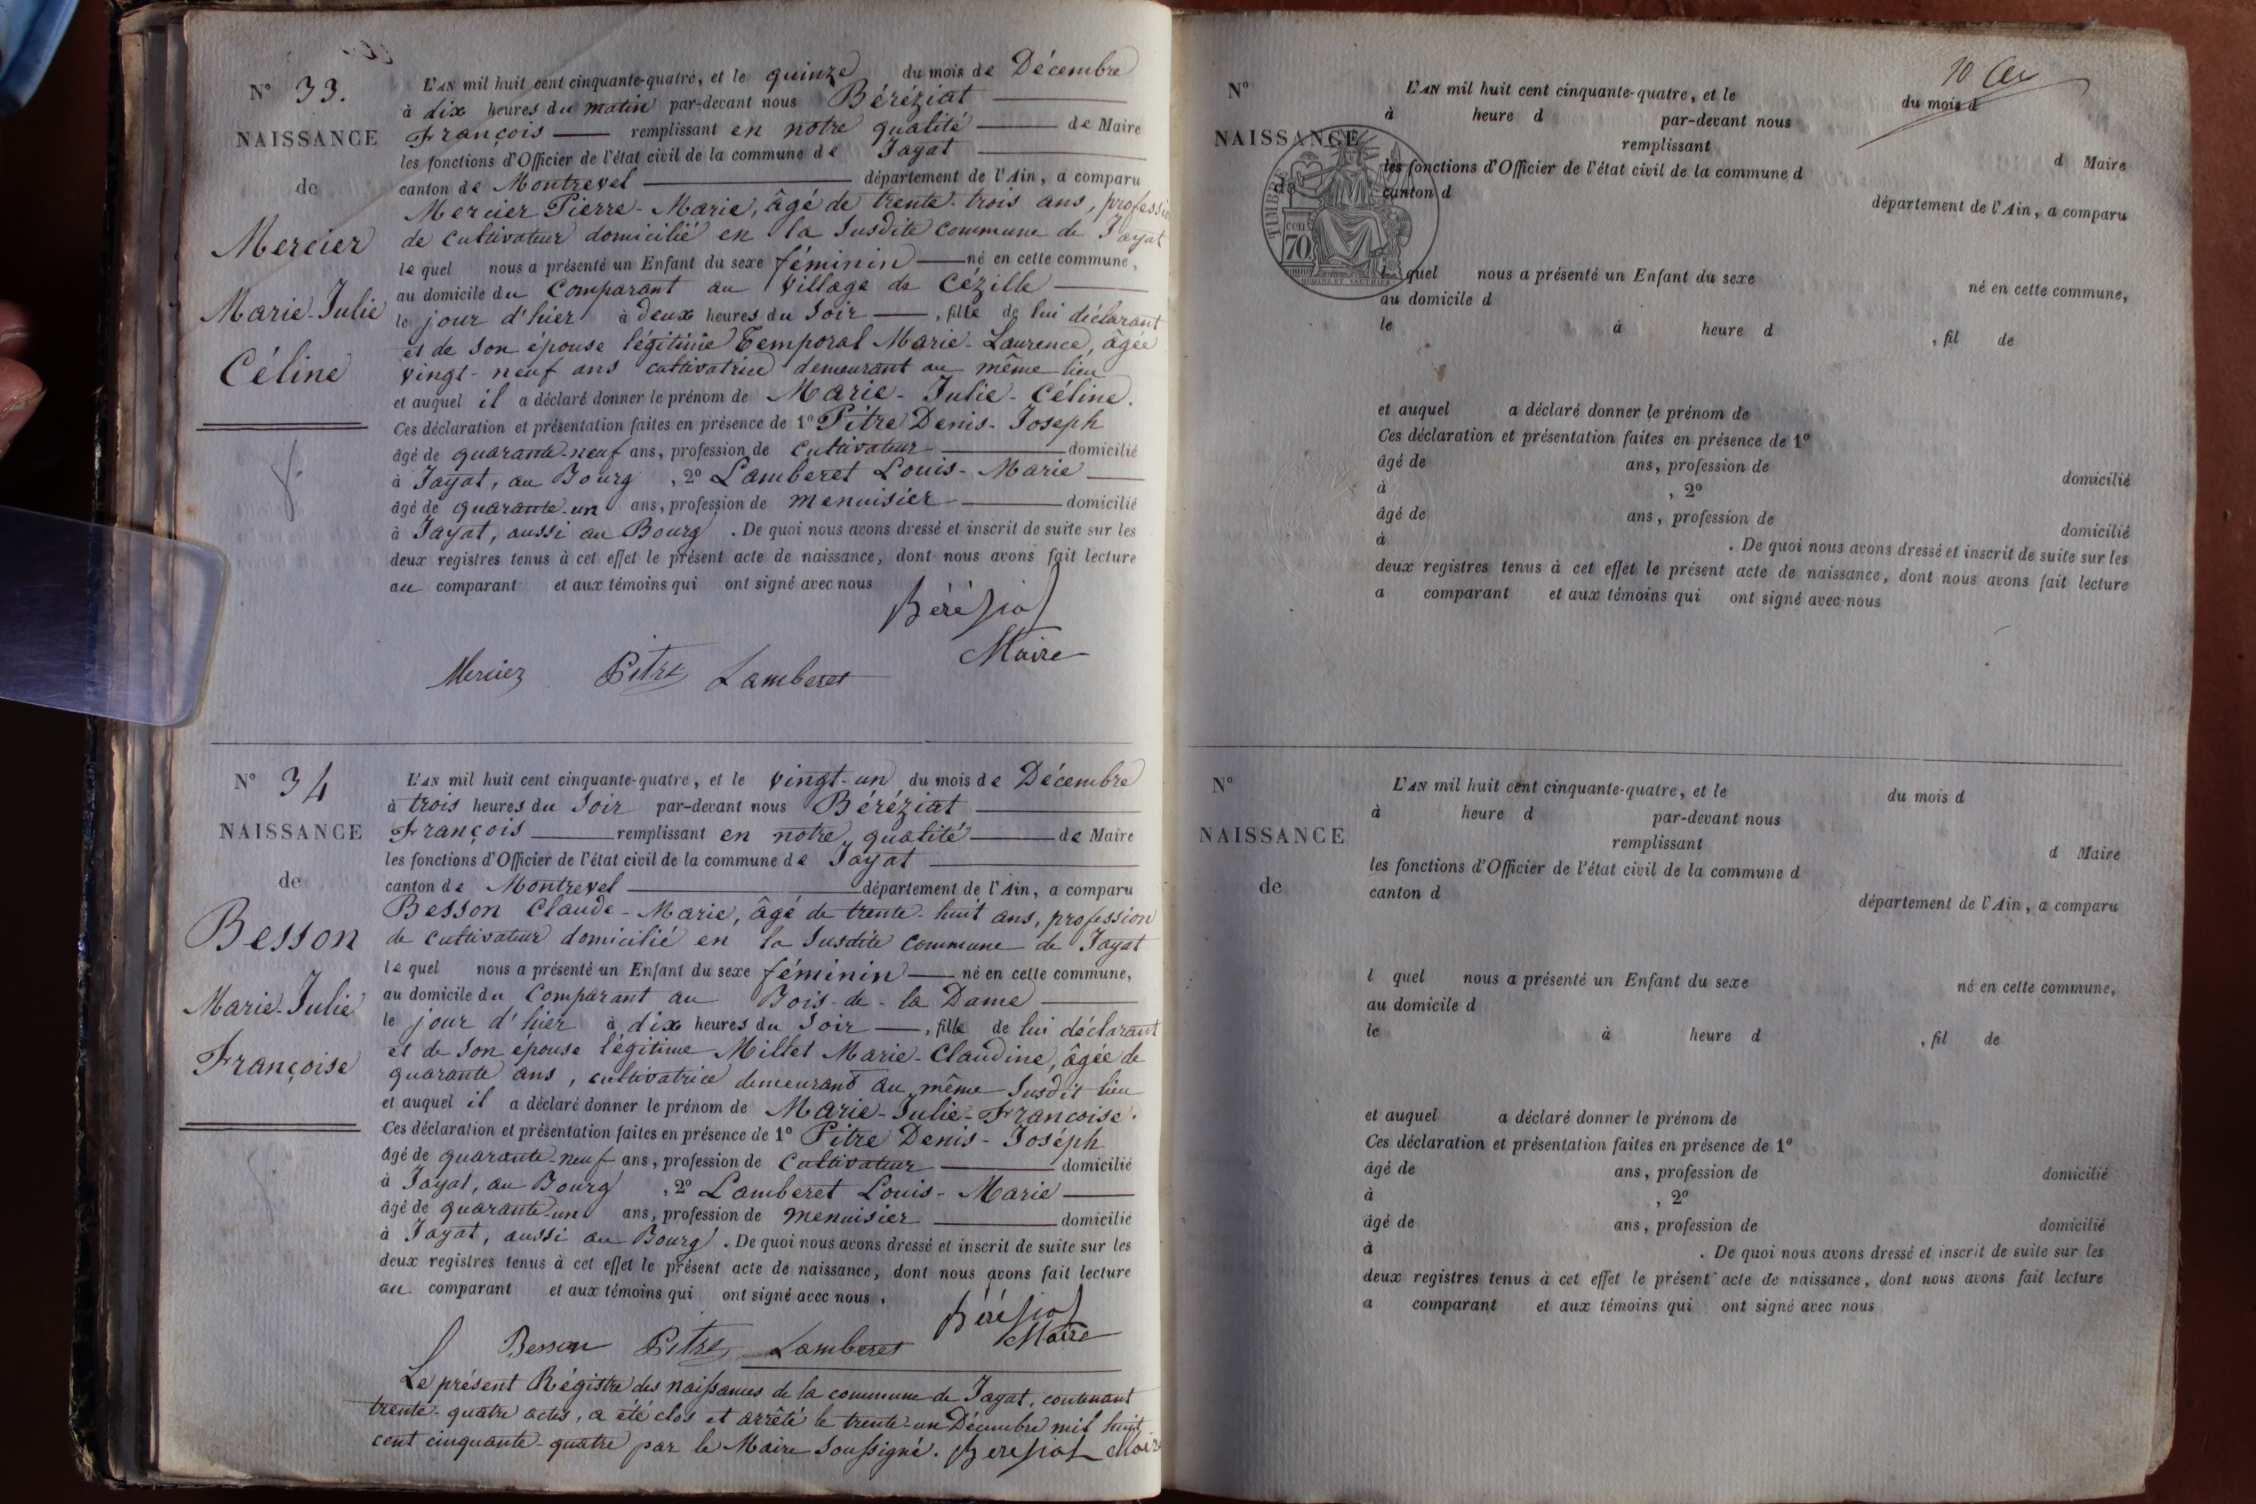 N° 33.
NAISSANCE
de
Mercier
Marie-Julie
Céline
L'AN mil huit cent cinquante-quatre, et le quinze du mois de Décembre
à dix heures du matin par-devant nous Béréziat
François remplissant en notre qualité de Maire
les fonctions d'Officier de l'état civil de la commune de Jayat
canton de Montrevel département de l'Ain, a comparu
Mercier Pierre-Marie, âgé de trente-trois ans, profession
de cultivateur domicilié en la susdite commune de Jayat
lequel nous a présenté un Enfant du sexe féminin né en cette commune,
au domicile du comparant au village de Cézille
le jour d'hier à deux heures du soir, fille de lui déclarant
et de son épouse légitime Temporal Marie-Laurence, âgée
vingt-neuf ans cultivatrice demeurant au même lieu
et auquel il a déclaré donner le prénom de Marie-Julie-Céline.
Ces déclaration et présentation faites en présence de 1° Pitre Denis-Joseph
âgé de quarante-neuf ans, profession de cultivateur domicilié
à Jayat, au Bourg, 2° Lamberet Louis-Marie
âgé de quarante-un ans, profession de menuisier domicilié
à Jayat, aussi au Bourg. De quoi nous avons dressé et inscrit de suite sur les
deux registres tenus à cet effet le présent acte de naissance, dont nous avons fait lecture
au comparant et aux témoins qui ont signé avec nous
Béréziat
Maire
Mercier Pitre Lamberet
N° 34
NAISSANCE
de
Besson
Marie-Julie
Françoise
L'AN mil huit cent cinquante-quatre, et le vingt-un du mois de Décembre
à trois heures du soir par-devant nous Béréziat
François remplissant en notre qualité de Maire
les fonctions d'Officier de l'état civil de la commune de Jayat
canton de Montrevel département de l'Ain, a comparu
Besson Claude-Marie, âgé de trente-huit ans, profession
de cultivateur domicilié en la susdite commune de Jayat
lequel nous a présenté un Enfant du sexe féminin né en cette commune,
au domicile du comparant au Bois-de-la Dame
le jour d'hier à dix heures du soir, fille de lui déclarant
et de son épouse légitime Millet Marie-Claudine, âgée de
quarante ans, cultivatrice demeurant au même susdit lieu
et auquel il a déclaré donner le prénom de Marie-Julie-Françoise.
Ces déclaration et présentation faites en présence de 1° Pitre Denis-Joséph
âgé de quarante-neuf ans, profession de cultivateur domicilié
à Jayat, au Bourg, 2° Lamberet Louis-Marie
âgé de quarante-un ans, profession de menuisier domicilié
à Jayat, aussi au Bourg. De quoi nous avons dressé et inscrit de suite sur les
deux registres tenus à cet effet le présent acte de naissance, dont nous avons fait lecture
au comparant et aux témoins qui ont signé avec nous.
Béréziat
Maire
Besson Pitre Lamberet
Le présent Régistre des naissances de la commune de Jayat, contenant
trente-quatre actes, a été clos et arrêté le trente-un Décembre mil huit
cent cinquante-quatre par le Maire soussigné. Béréziat Maire
N°
NAISSANCE
de
TIMBRE
70
L'AN mil huit cent cinquante-quatre, et le du mois d
à heure d par-devant nous
remplissant d Maire
les fonctions d'Officier de l'état civil de la commune d
canton d département de l'Ain, a comparu
l quel nous a présenté un Enfant du sexe né en cette commune,
au domicile d
le à heure d , fil de
et auquel a déclaré donner le prénom de
Ces déclaration et présentation faites en présence de 1°
âgé de ans, profession de domicilié
à , 2°
âgé de ans, profession de domicilié
à . De quoi nous avons dressé et inscrit de suite sur les
deux registres tenus à cet effet le présent acte de naissance, dont nous avons fait lecture
a comparant et aux témoins qui ont signé avec nous
N°
NAISSANCE
de
L'AN mil huit cent cinquante-quatre, et le du mois d
à heure d par-devant nous
remplissant d Maire
les fonctions d'Officier de l'état civil de la commune d
canton d département de l'Ain, a comparu
l quel nous a présenté un Enfant du sexe né en cette commune,
au domicile d
le à heure d , fil de
et auquel a déclaré donner le prénom de
Ces déclaration et présentation faites en présence de 1°
âgé de ans, profession de domicilié
à , 2°
âgé de ans, profession de domicilié
à . De quoi nous avons dressé et inscrit de suite sur les
deux registres tenus à cet effet le présent acte de naissance, dont nous avons fait lecture
a comparant et aux témoins qui ont signé avec nous